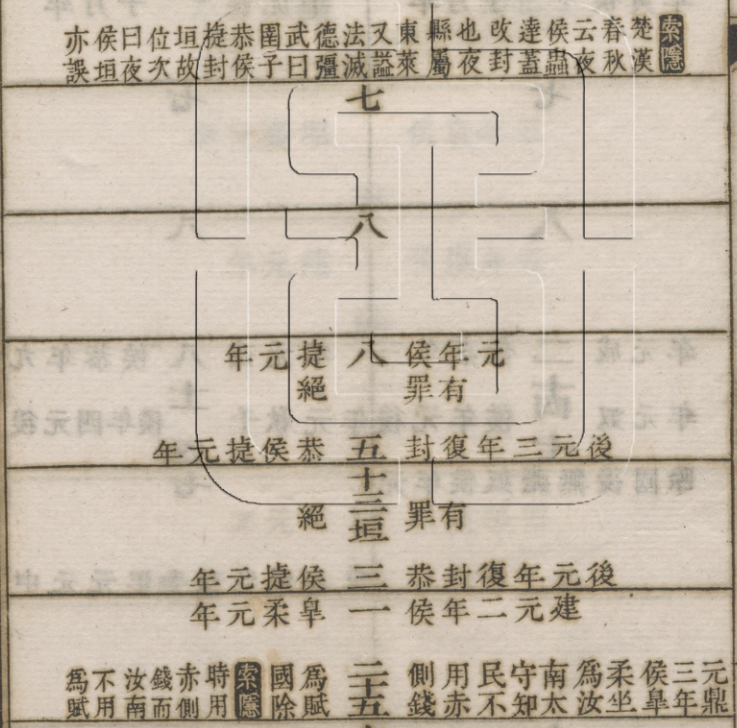 索隱楚漢春秋云夜侯蟲達蓋改封也夜縣屬東萊又謚法滅德彊武曰圉子恭侯捷封垣故位次曰夜侯垣亦誤
七
八
元年侯八捷元年
有罪絕
後元三年復封五恭侯捷元年
十三垣
有罪絕
後元年復封恭三侯捷元年
建元二年侯一皐柔元年
元鼎三年侯皐柔坐爲汝南太守知民不用赤側錢二十五爲賦國除索隱時用赤側錢而汝南不用爲賦